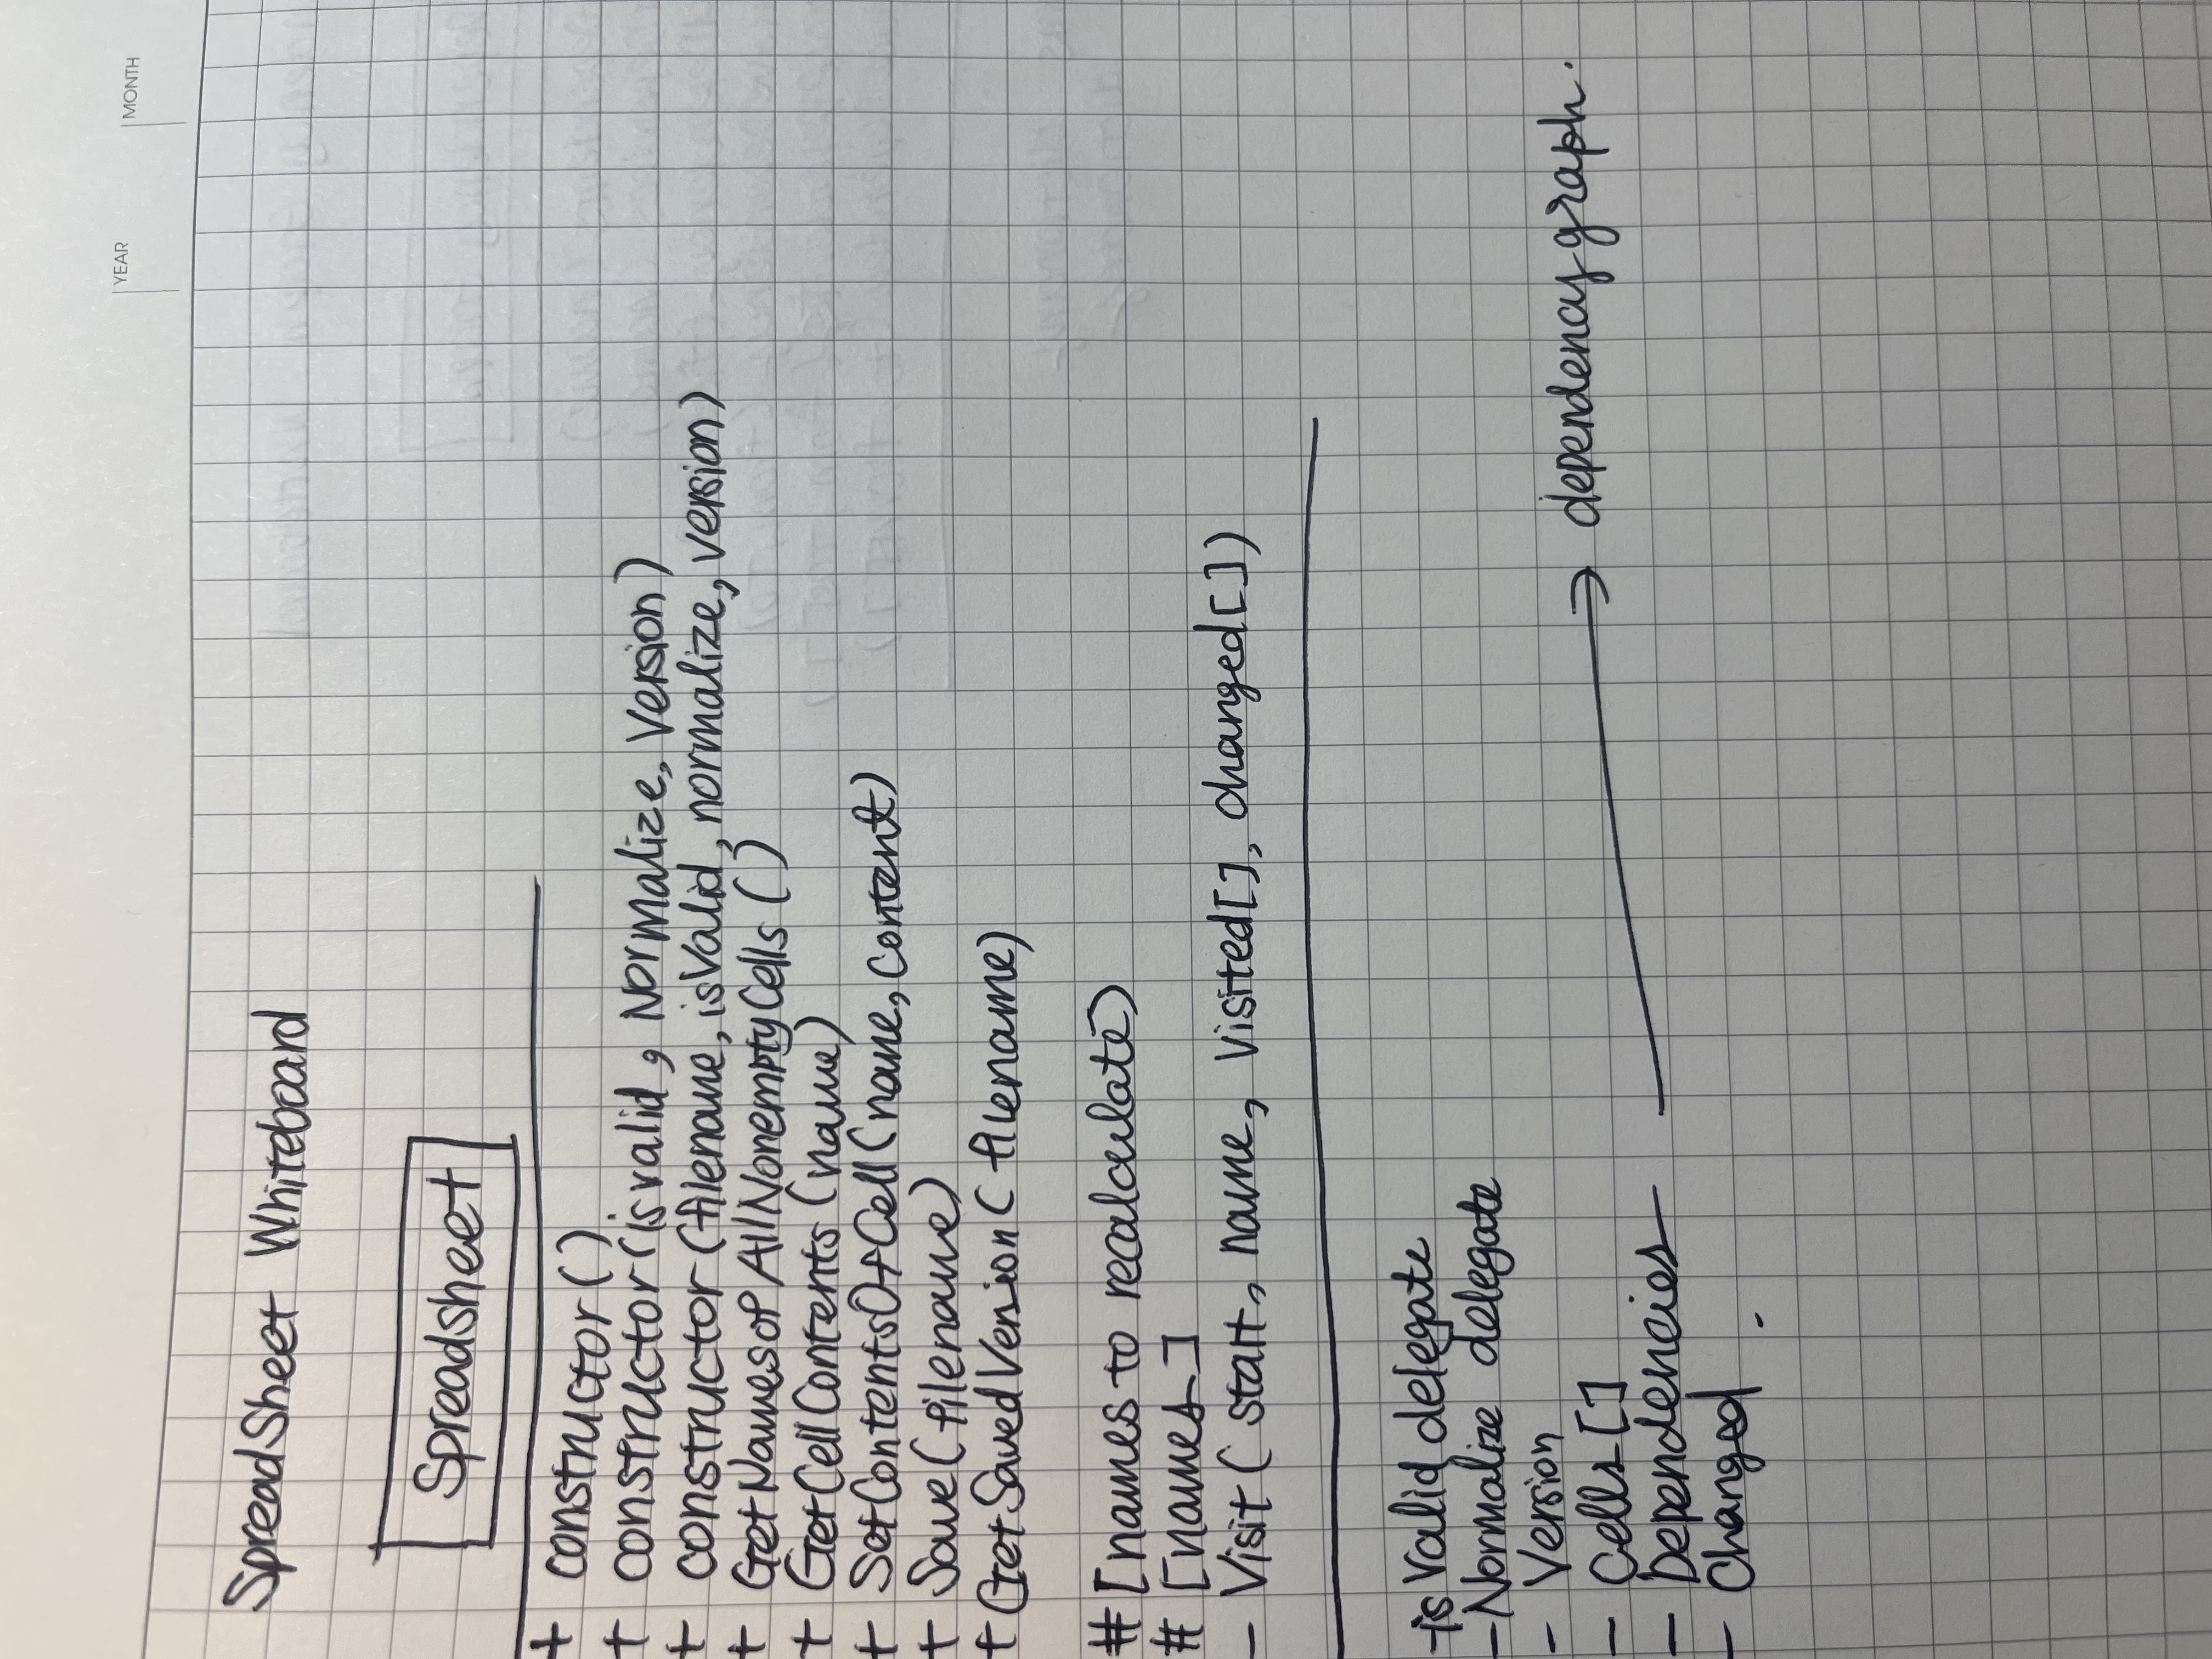 YEAR
MONTH
SpreadSheet Whiteboard
Spreadsheet
+ constructor().
+ constructor(isvalid, Normalize, Version)
+ constructor(filename, isValid, normalize, version)
+ GetNamesofAllNonemptyCells()
+ GetCellContents(name)
+ SetContentsOfCell(name, content)
+ Save(filename)
+ GetSavedVersion(filename)
# [names to recalculate)
# [names]
- Visit( start, name, Visited[], changed[])
- is Valid delegate
- Normalize delegate
- Version
- Cells[]
- Dependencies → dependency graph.
- Changed
-